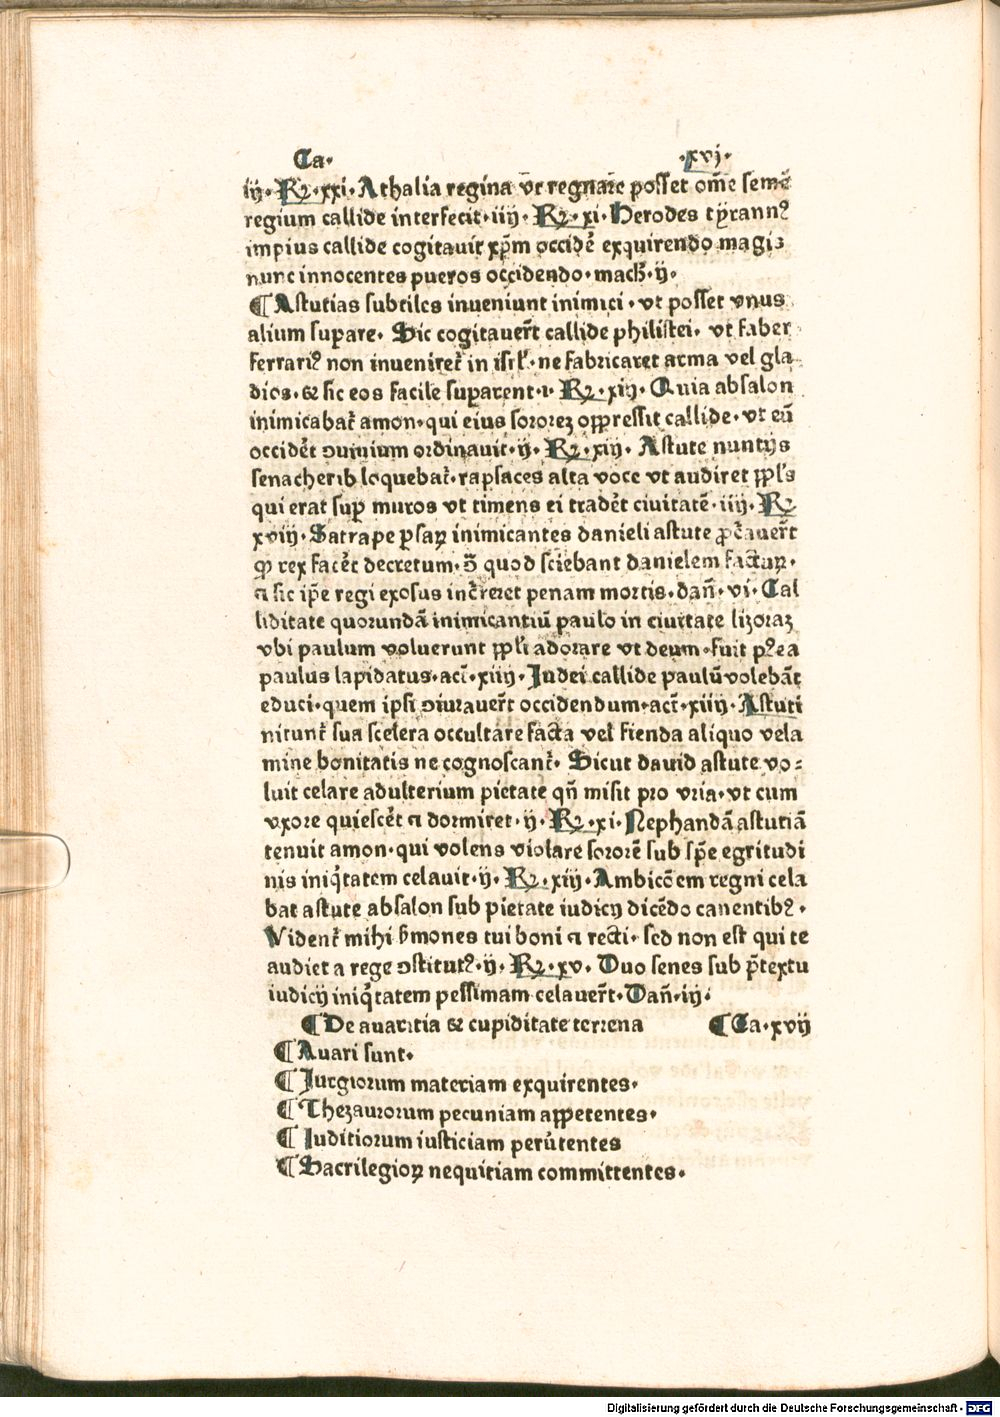 Ca· ·xvj·
iij· Rꝫ·xxi· Athalia regina vt regnare posset om̄e semē
regium callide interfecit·iiij· Rꝫ·xi· Herodes tyrannꝰ
impius callide cogitauit xp̄m occidē exquirendo magis
nunc innocentes pueros occidendo·mach̄·ij·
¶ Astutias subtiles inueniunt inimici·vt posset vnus
alium suꝑare· Sic cogitauer̄t callide philistei·vt faber
ferrariꝰ non inueniret᷑ in isrl̄·ne fabricaret arma vel gla
dios·& sic eos facile suꝑarent·i· Rꝫ·xiij· Quia absalon
inimicabat᷑ amon·qui eius sororeꝫ oppressit callide·vt eū
occidēt ↄuiuium ordinauit·ij· Rꝫ·xiij· Astute nuntijs
senacherib loquebat᷑·rapsaces alta voce vt audiret ppl̄s
qui erat suꝑ muros vt timens ei tradēt ciuitatē·iiij· Rꝫ
xviij· Satrape ꝑsaꝝ inimicantes danieli astute ꝓcᷓauer̄t
ꝙ rex facēt decretum·ↄ̄ quod sciebant danielem factuꝝ·
⁊ sic ip̄e regi exosus incᷓreret penam mortis·dan̄·vi· Cal
liditate quorundā inimicantiū paulo in ciuitate lizoraꝫ
vbi paulum voluerunt ppl̄i adorare vt deum·fuit pꝰea
paulus lapidatus·act̄·xiiij· Iudei callide paulū volebāt
educi·quem ipsi ↄiurauer̄t occidendum·act̄·xiiij· Astuti
nitunt᷑ sua scelera occultare facta vel fienda aliquo vela
mine bonitatis ne cognoscant᷑· Sicut dauid astute vo⸗
luit celare adulterium pietate qn̄ misit pro vria·vt cum
vxore quiescēt ⁊ dormiret·ij· Rꝫ·xi· Nephandā astutiā
tenuit amon·qui volens violare sororē sub sp̄e egritudi
nis iniqͥtatem celauit·ij· Rꝫ·xiij· Ambicōem regni cela
bat astute absalon sub pietate iudicij dicēdo canentibꝰ·
Vident᷑ mihi ẜmones tui boni ⁊ recti·sed non est qui te
audiet a rege ↄstitutꝰ·ij· Rꝫ·xv· Duo senes sub p̄textu
iudicij iniqͥtatem pessimam celauer̄t· Dan̄·iij·
¶ De auaritia & cupiditate terrena ¶ Ca·xvij
¶ Auari sunt·
¶ Iurgiorum materiam exquirentes·
¶ Thezaurorum pecuniam appetentes·
¶ Iuditiorum iusticiam peruͥtentes
¶ Sacrilegioꝝ nequitiam committentes·
Digitalisierung gefördert durch die Deutsche Forschungsgemeinschaft - DFG